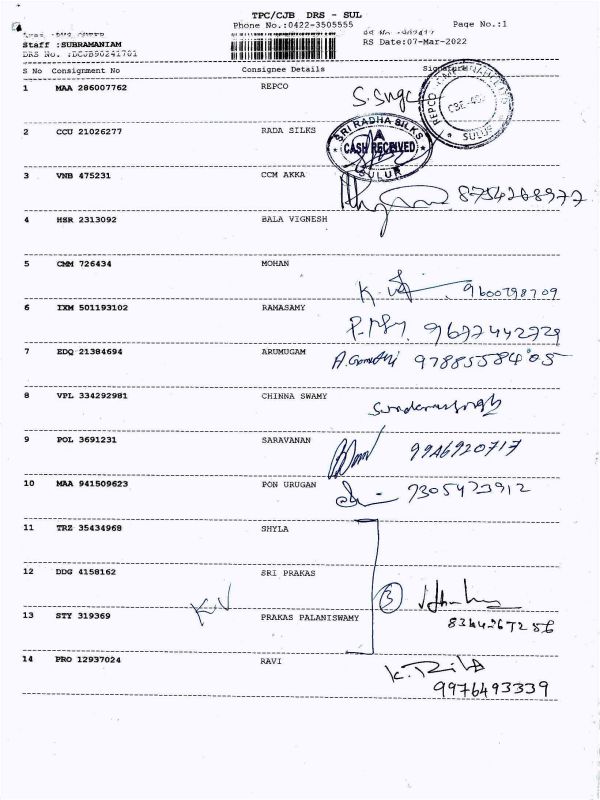 TPC/CJB DRS - SUL
Phone No.:0422-3505555 Page No.:1
Staff :SUBRAMANIAM RS Date:07-Mar-2022
DRS No. :DCJB90241701
S No Consignment No Consignee Details Signature
1 MAA 286007762 REPCO
REPCO SULUR
2 CCU 21026277 RADA SILKS
SRI RADHA SILKS
CASH RECEIVED
SULUR
3 VNB 475231 CCM AKKA
8754268977
4 HSR 2313092 BALA VIGNESH
5 CMM 726434 MOHAN
9600798709
6 IXM 501193102 RAMASAMY
9697442729
7 EDQ 21384694 ARUMUGAM
A. Gomathi 9788558405
8 VPL 334292981 CHINNA SWAMY
9 POL 3691231 SARAVANAN
9946920717
10 MAA 941509623 PON URUGAN
7305473912
11 TRZ 35434968 SHYLA
12 DDG 4158162 SRI PRAKAS
3
13 STY 319369 PRAKAS PALANISWAMY
KV
8344267256
14 PRO 12937024 RAVI
9976493339